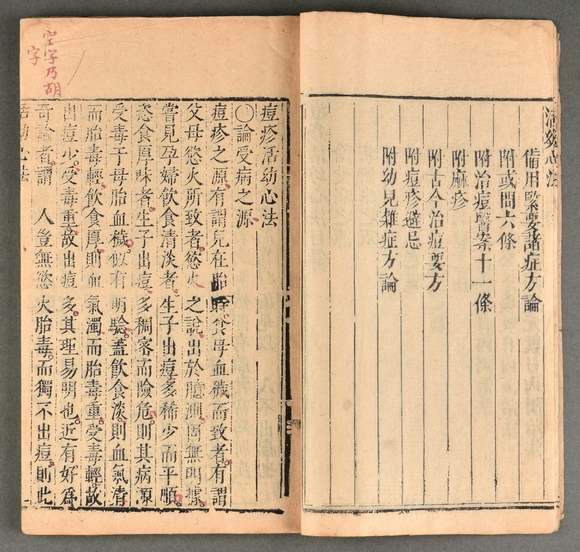 活幼心法
備用緊要諸症方論
附或問六條
附治痘醫案十一條
附麻疹
附古今治痘要方
附痘疹避忌
附幼兒雜症方論
空字乃胡
字
痘疹活幼心法
〇論受病之源
痘疹之源有謂兒在胎時食母血穢而致者有謂
父母慾火所致者慾火之說出於臆測固無明據
嘗見孕婦飲食清淡者生子出痘多稀少而平順
恣食厚味者生子出痘多稠密而險危則其病源
受毒于母胎血穢似有明驗蓋飲食淡則血氣清
而胎毒輕飲食厚則血氣濁而胎毒重受毒輕故
出痘少受毒重故出痘多其理易明也近有好為
奇論者謂 人豈無慾火胎毒而獨不出痘則此
活幼心法